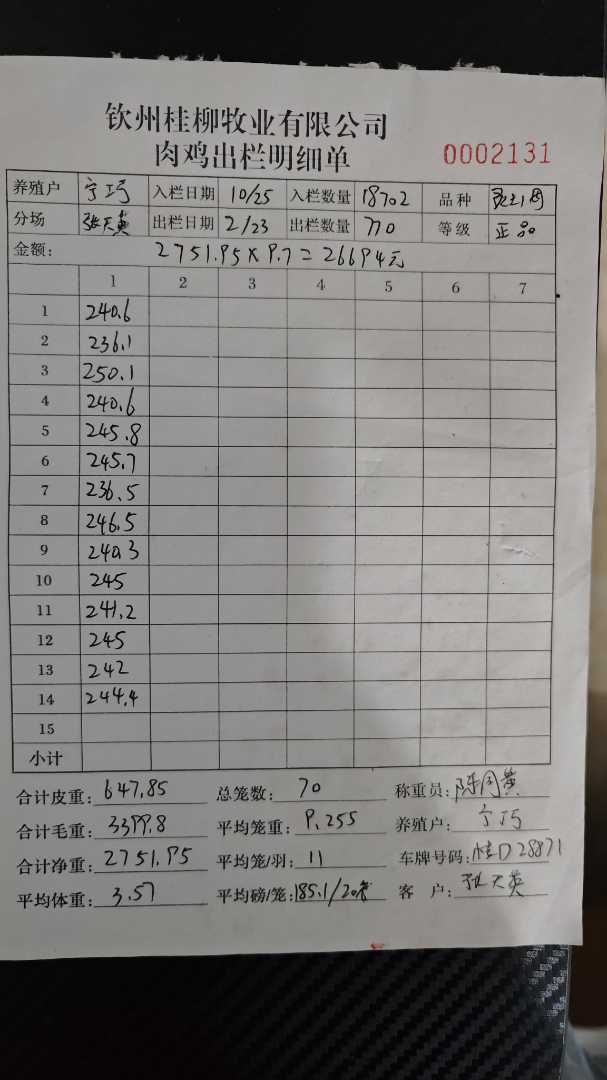 钦州桂柳牧业有限公司
肉鸡出栏明细单 0002131
养殖户 宁巧 入栏日期 10/25 入栏数量 18702 品种
分场 张天英 出栏日期 2/23 出栏数量 770 等级 正品
金额: 2751.95×9.7=26694元
1 2 3 4 5 6 7
1 240.6
2 236.1
3 250.1
4 240.6
5 245.8
6 245.7
7 236.5
8 246.5
9 240.3
10 245
11 241.2
12 245
13 242
14 244.4
15
小计
合计皮重: 647.85 总笼数: 70 称重员:
合计毛重: 3399.8 平均笼重: 9.255 养殖户: 宁巧
合计净重: 2751.95 平均笼/羽: 11 车牌号码: 桂D28871
平均体重: 3.57 平均磅/笼: 185.1/20 客户: 张天英